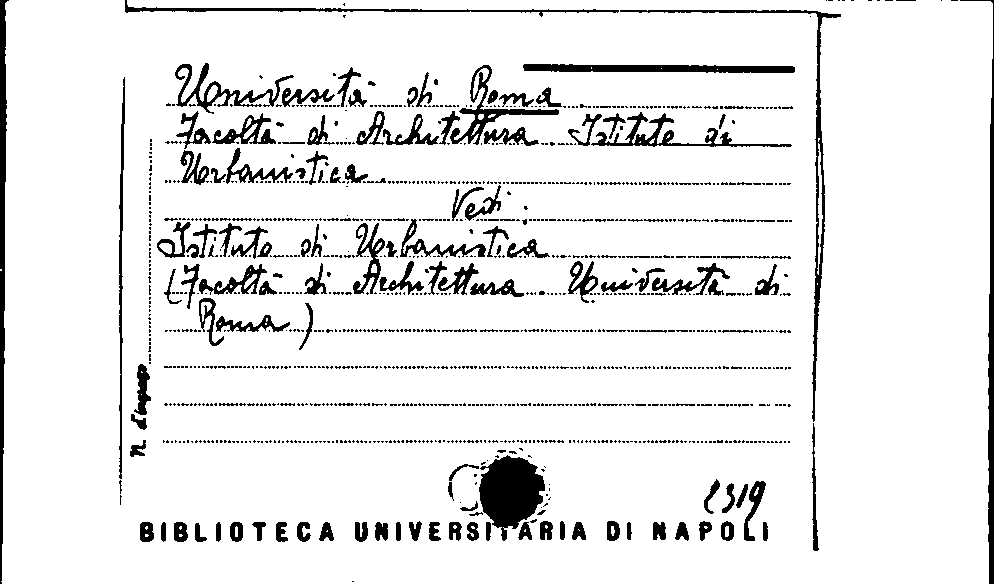 Università di Roma.
Facoltà di Architettura. Istituto di
Urbanistica.
Vedi:
Istituto di Urbanistica
(Facoltà di Architettura. Università di
Roma)
N. d'ingresso
2319
BIBLIOTECA UNIVERSITARIA DI NAPOLI